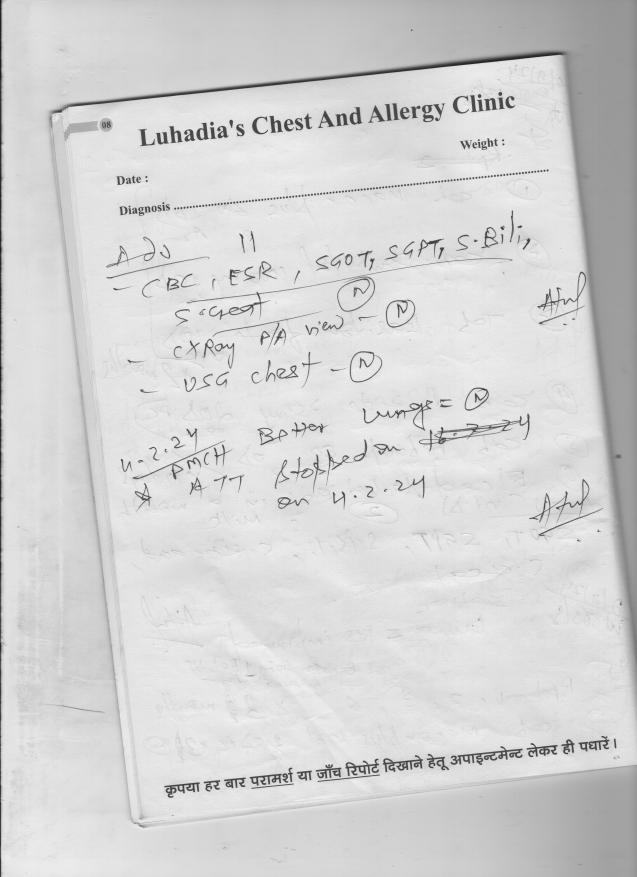 08
Luhadia's Chest And Allergy Clinic
Weight :
Date :
Diagnosis
Adv 11
- CBC, ESR, SGOT, SGPT, S.Bili,
S.creat (N)
- CXRay P/A view - (N)
- USG chest - (N)
Atul
4.2.24 Better Lungs = (N)
PMCH
ATT Stopped on 16.2.24
on 4.2.24
Atul
कृपया हर बार परामर्श या जाँच रिपोर्ट दिखाने हेतू अपाइन्टमेन्ट लेकर ही पधारें।